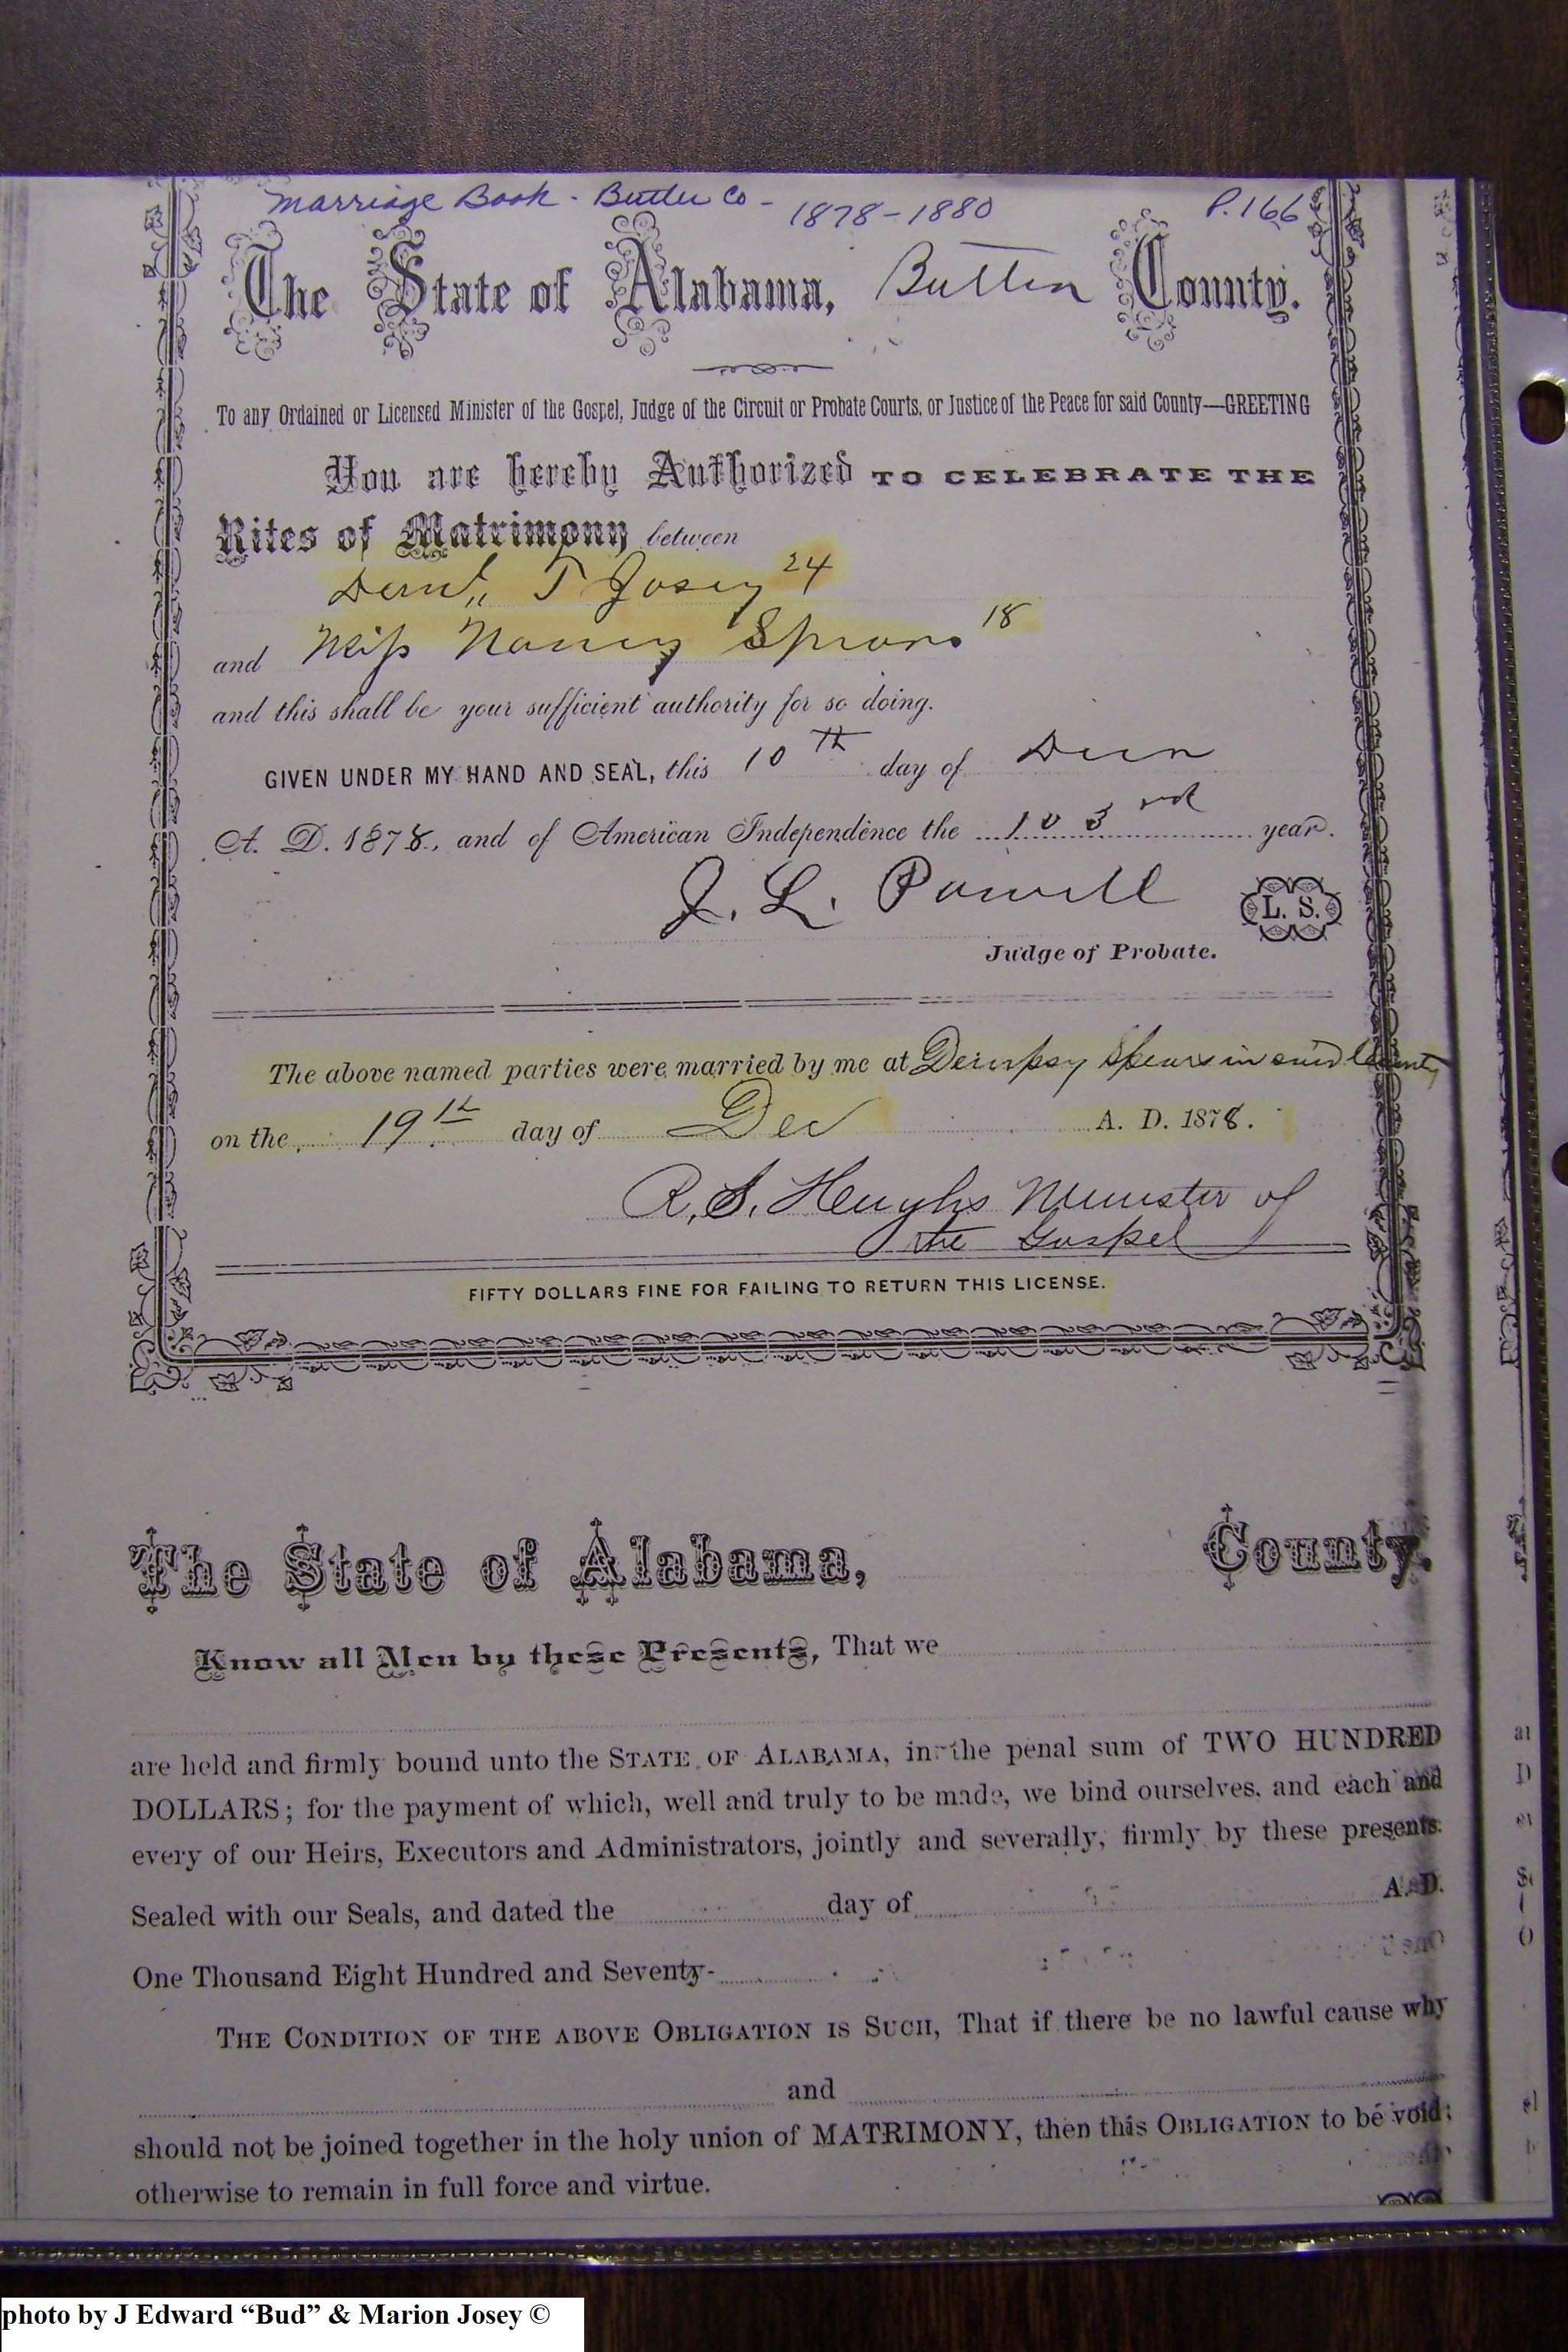 Marriage Book - Butler Co - 1878-1880 P.166
The State of Alabama, Butler County.
To any Ordained or Licensed Minister of the Gospel, Judge of the Circuit or Probate Courts, or Justice of the Peace for said County—GREETING
You are hereby Authorized TO CELEBRATE THE
Rites of Matrimony between
T Josey 24
and Miss Nancy 18
and this shall be your sufficient authority for so doing.
GIVEN UNDER MY HAND AND SEAL, this 10th day of
A. D. 1878, and of American Independence the 103rd year.
J. L. Powell L. S.
Judge of Probate.
The above named parties were married by me at Dempsey Spears in said County
on the 19th day of Dec A. D. 1878.
R. S. Minister of
the Gospel
FIFTY DOLLARS FINE FOR FAILING TO RETURN THIS LICENSE.
The State of Alabama, County.
Know all Men by these Presents, That we
are held and firmly bound unto the STATE OF ALABAMA, in the penal sum of TWO HUNDRED
DOLLARS; for the payment of which, well and truly to be made, we bind ourselves, and each and
every of our Heirs, Executors and Administrators, jointly and severally, firmly by these presents.
Sealed with our Seals, and dated the day of A. D.
One Thousand Eight Hundred and Seventy-
THE CONDITION OF THE ABOVE OBLIGATION IS SUCH, That if there be no lawful cause why
and
should not be joined together in the holy union of MATRIMONY, then this OBLIGATION to be void;
otherwise to remain in full force and virtue.
photo by J Edward “Bud” & Marion Josey ©